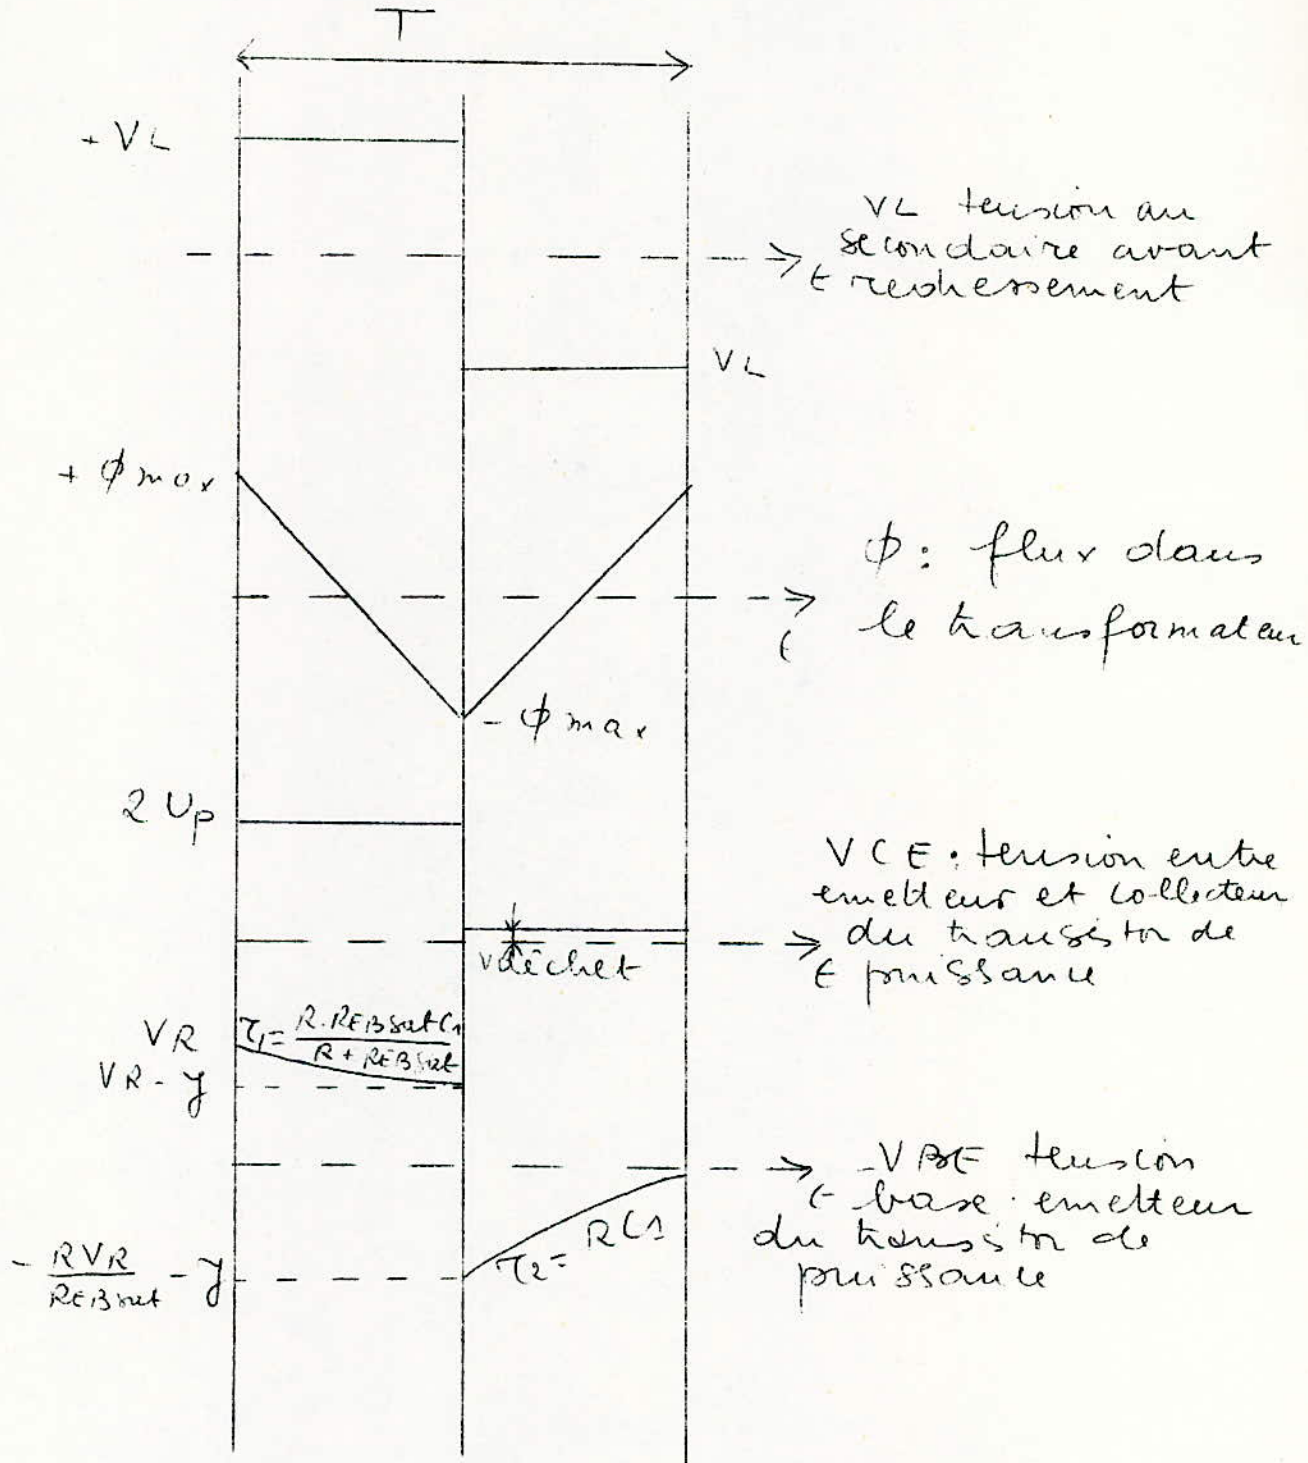 T
+ VL
VL tension au
secondaire avant
t redressement
VL
+ ϕ max
ϕ : flux dans
le transformateur
t
- ϕ max
2 Up
VCE : tension entre
emetteur et collecteur
du transistor de
t puissance
V déchet
VR
τ1 = R.REBsat C1 / R + REBsat
VR - y
- VBE tension
t base. emetteur
du transistor de
puissance
τ2 = RC1
- RVR / REBsat - y